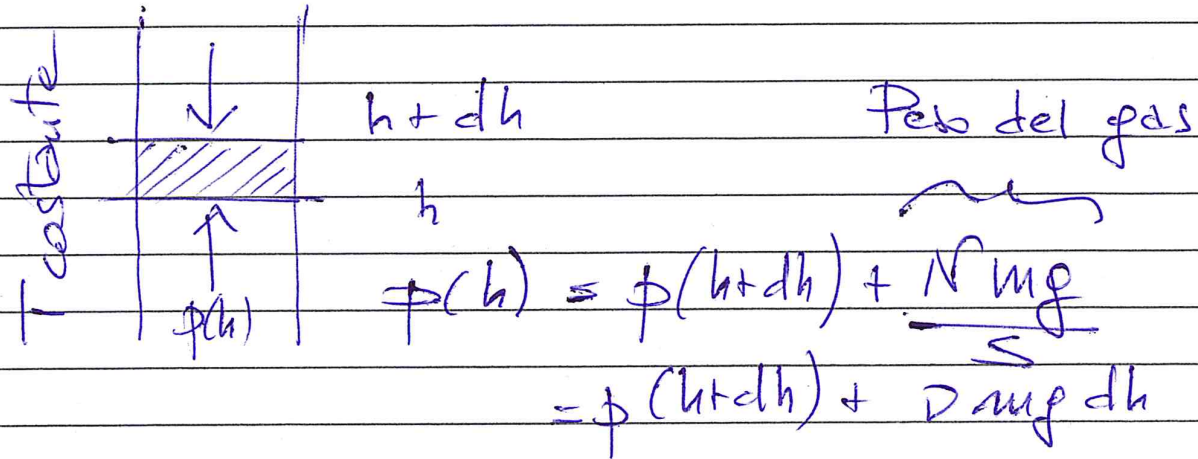 T costante
h + dh
Peso del gas
h
p(h)
p(h) = p(h+dh) + N mg / S
= p(h+dh) + n mg dh